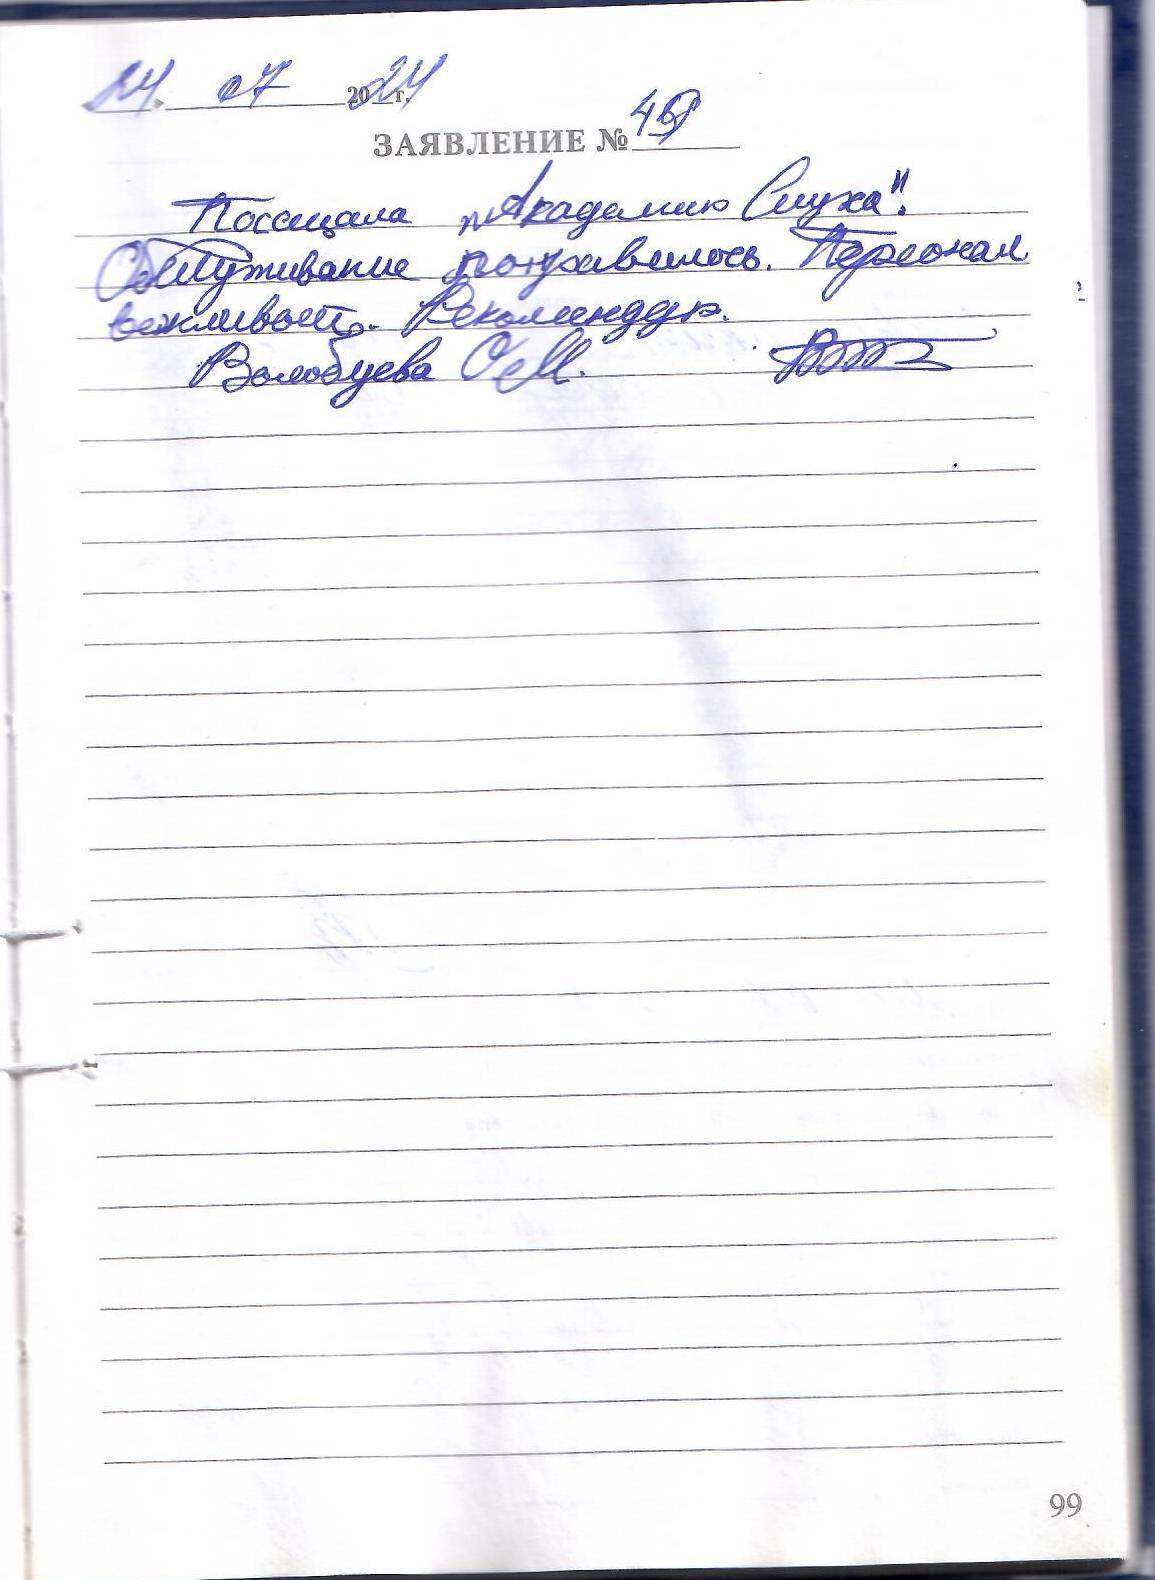 24 07 2024 г.
ЗАЯВЛЕНИЕ №
Посещала „Академию Слуха".
Обслуживание понравилось. Персонал
вежливый. Рекомендую.
Волобуева О.М.
99